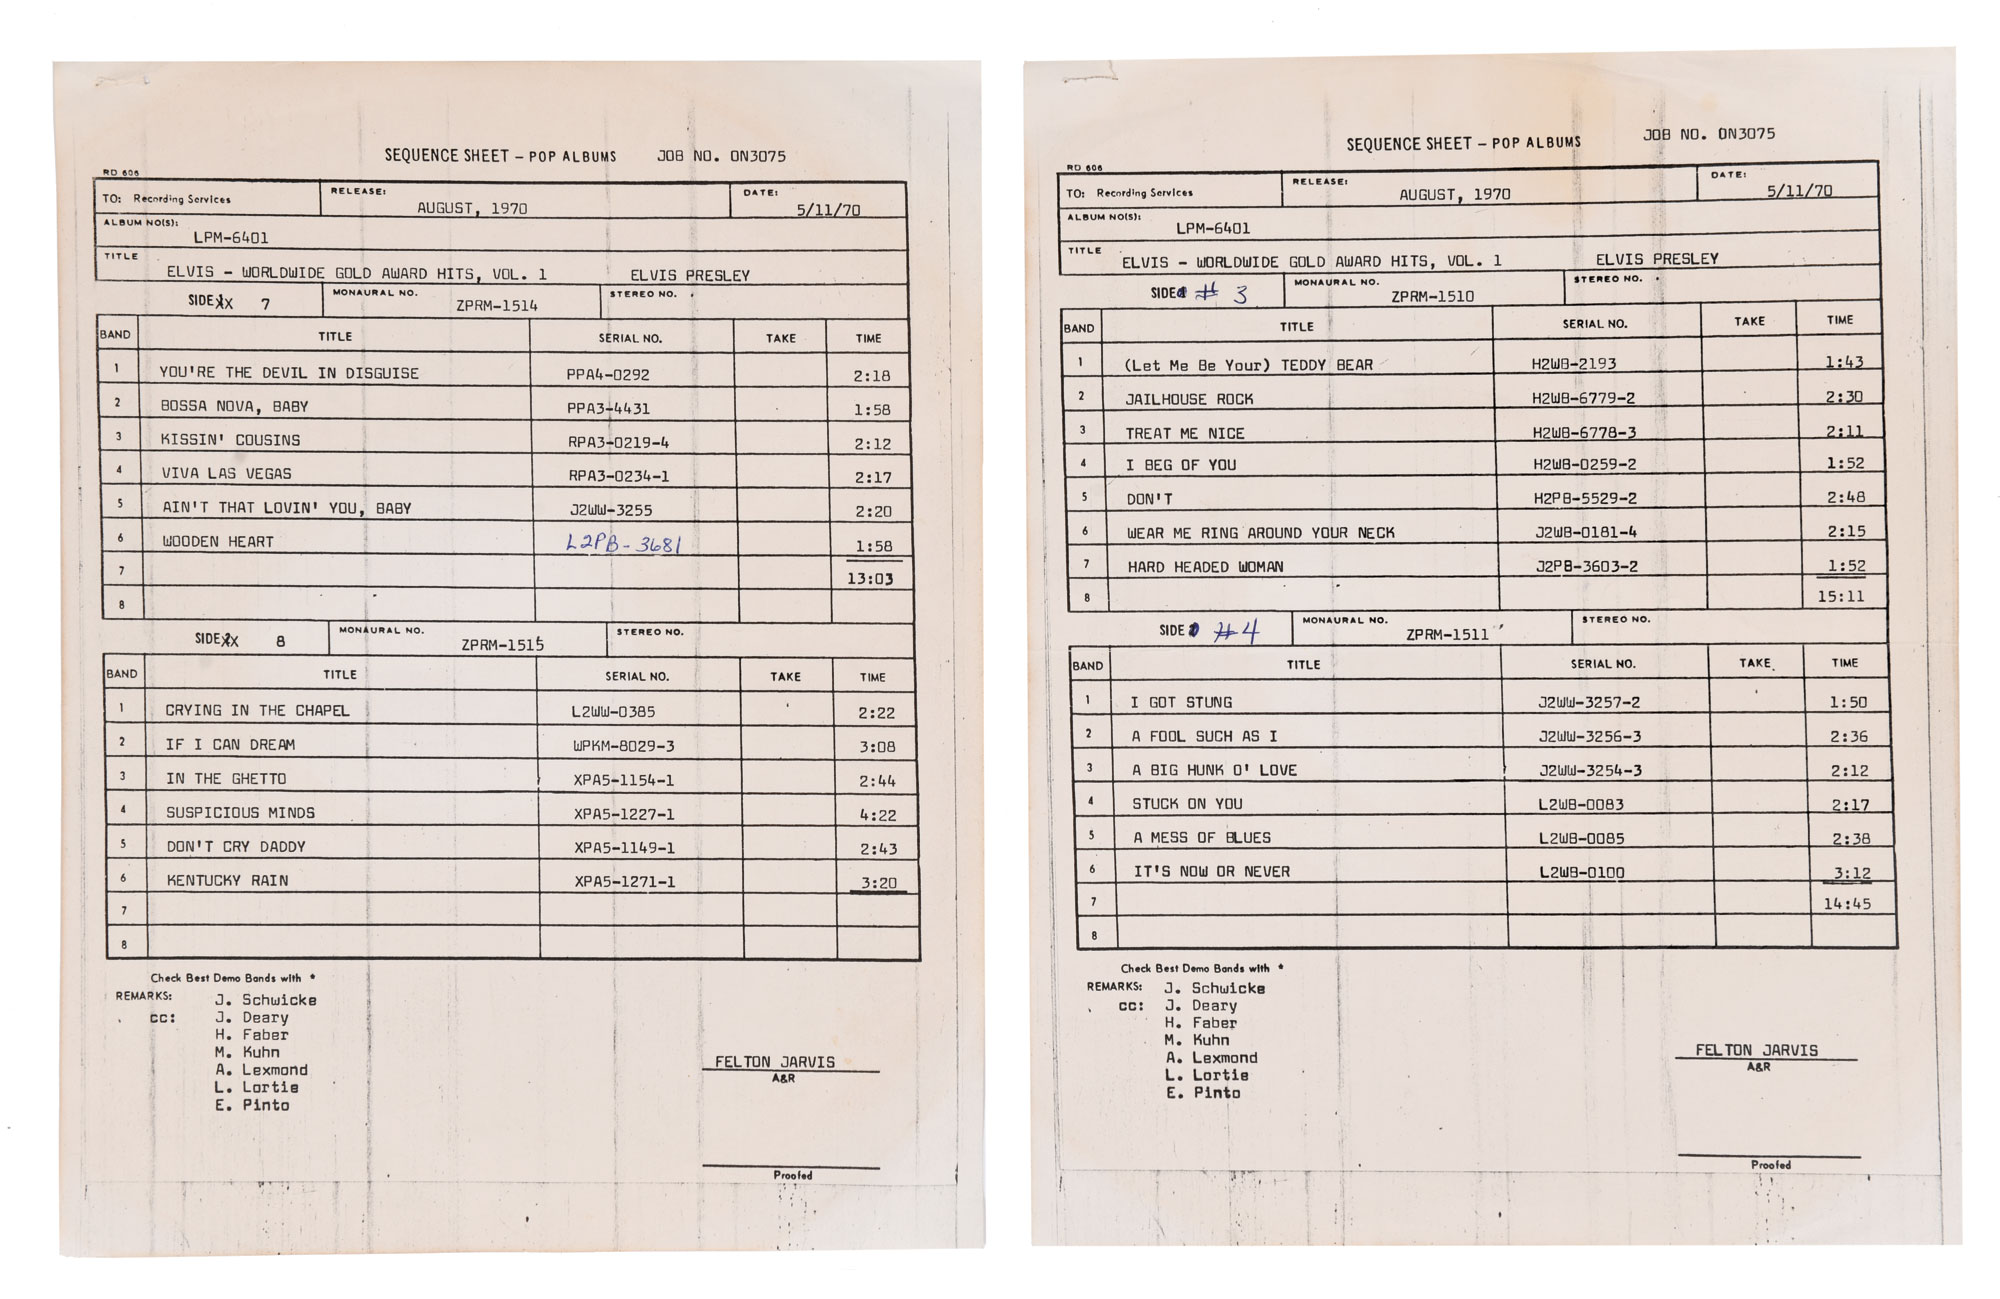 SEQUENCE SHEET – POP ALBUMS JOB NO. 0N3075
RD 606
TO: Recording Services RELEASE: AUGUST, 1970 DATE: 5/11/70
ALBUM NO(S): LPM-6401
TITLE ELVIS - WORLDWIDE GOLD AWARD HITS, VOL. 1 ELVIS PRESLEY
SIDE 7 MONAURAL NO. ZPRM-1514 STEREO NO.
BAND TITLE SERIAL NO. TAKE TIME
1 YOU'RE THE DEVIL IN DISGUISE PPA4-0292 2:18
2 BOSSA NOVA, BABY PPA3-4431 1:58
3 KISSIN' COUSINS RPA3-0219-4 2:12
4 VIVA LAS VEGAS RPA3-0234-1 2:17
5 AIN'T THAT LOVIN' YOU, BABY J2WW-3255 2:20
6 WOODEN HEART L2PB-3681 1:58
7 13:03
8
SIDE 8 MONAURAL NO. ZPRM-1515 STEREO NO.
BAND TITLE SERIAL NO. TAKE TIME
1 CRYING IN THE CHAPEL L2WW-0385 2:22
2 IF I CAN DREAM WPKM-8029-3 3:08
3 IN THE GHETTO XPA5-1154-1 2:44
4 SUSPICIOUS MINDS XPA5-1227-1 4:22
5 DON'T CRY DADDY XPA5-1149-1 2:43
6 KENTUCKY RAIN XPA5-1271-1 3:20
7
8
Check Best Demo Bands with *
REMARKS: J. Schwicke
cc: J. Deary
H. Faber
M. Kuhn
A. Lexmond
L. Lortie
E. Pinto
FELTON JARVIS
A&R
Proofed
SEQUENCE SHEET – POP ALBUMS JOB NO. 0N3075
RD 606
TO: Recording Services RELEASE: AUGUST, 1970 DATE: 5/11/70
ALBUM NO(S): LPM-6401
TITLE ELVIS - WORLDWIDE GOLD AWARD HITS, VOL. 1 ELVIS PRESLEY
SIDE # 3 MONAURAL NO. ZPRM-1510 STEREO NO.
BAND TITLE SERIAL NO. TAKE TIME
1 (Let Me Be Your) TEDDY BEAR H2WB-2193 1:43
2 JAILHOUSE ROCK H2WB-6779-2 2:30
3 TREAT ME NICE H2WB-6778-3 2:11
4 I BEG OF YOU H2WB-0259-2 1:52
5 DON'T H2PB-5529-2 2:48
6 WEAR ME RING AROUND YOUR NECK J2WB-0181-4 2:15
7 HARD HEADED WOMAN J2PB-3603-2 1:52
8 15:11
SIDE #4 MONAURAL NO. ZPRM-1511 STEREO NO.
BAND TITLE SERIAL NO. TAKE TIME
1 I GOT STUNG J2WW-3257-2 1:50
2 A FOOL SUCH AS I J2WW-3256-3 2:36
3 A BIG HUNK O' LOVE J2WW-3254-3 2:12
4 STUCK ON YOU L2WB-0083 2:17
5 A MESS OF BLUES L2WB-0085 2:38
6 IT'S NOW OR NEVER L2WB-0100 3:12
7 14:45
8
Check Best Demo Bands with *
REMARKS: J. Schwicke
cc: J. Deary
H. Faber
M. Kuhn
A. Lexmond
L. Lortie
E. Pinto
FELTON JARVIS
A&R
Proofed